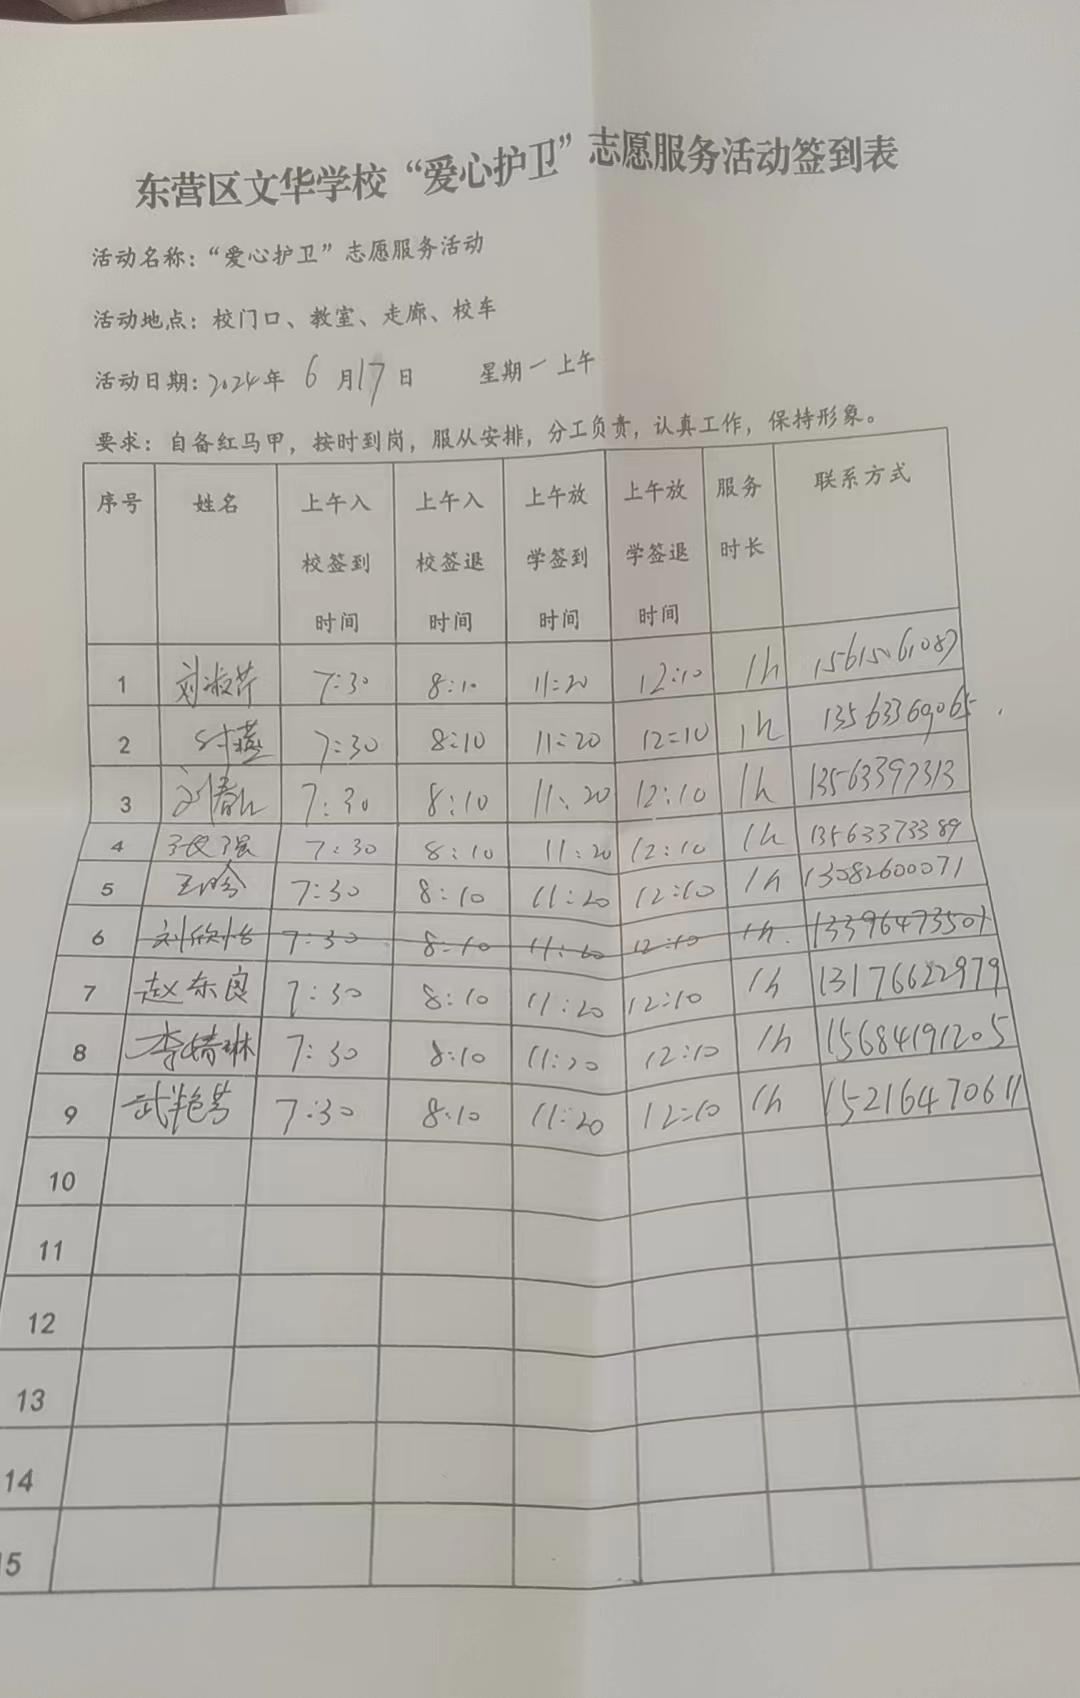 东营区文华学校“爱心护卫”志愿服务活动签到表
活动名称：“爱心护卫”志愿服务活动
活动地点：校门口、教室、走廊、校车
活动日期：2024年 6 月17日 星期一上午
要求：自备红马甲，按时到岗，服从安排，分工负责，认真工作，保持形象。
序号 姓名 上午入校签到时间 上午入校签退时间 上午放学签到时间 上午放学签退时间 服务时长 联系方式
1 刘淑芹 7:30 8:10 11:20 12:10 1h 15615061087
2 7:30 8:10 11:20 12:10 1h 13563369065
3 7:30 8:10 11:20 12:10 1h 13563397313
4 张强 7:30 8:10 11:20 12:10 1h 13563373389
5 王玲 7:30 8:10 11:20 12:10 1h 13082600071
6 刘欣怡 7:30 8:10 12:10 1h. 13396473501
7 赵东良 7:30 8:10 11:20 12:10 1h 13176622979
8 李婧琳 7:30 8:10 11:20 12:10 1h 15684191205
9 武艳芳 7:30 8:10 11:20 12:10 1h 15216470611
10
11
12
13
14
15